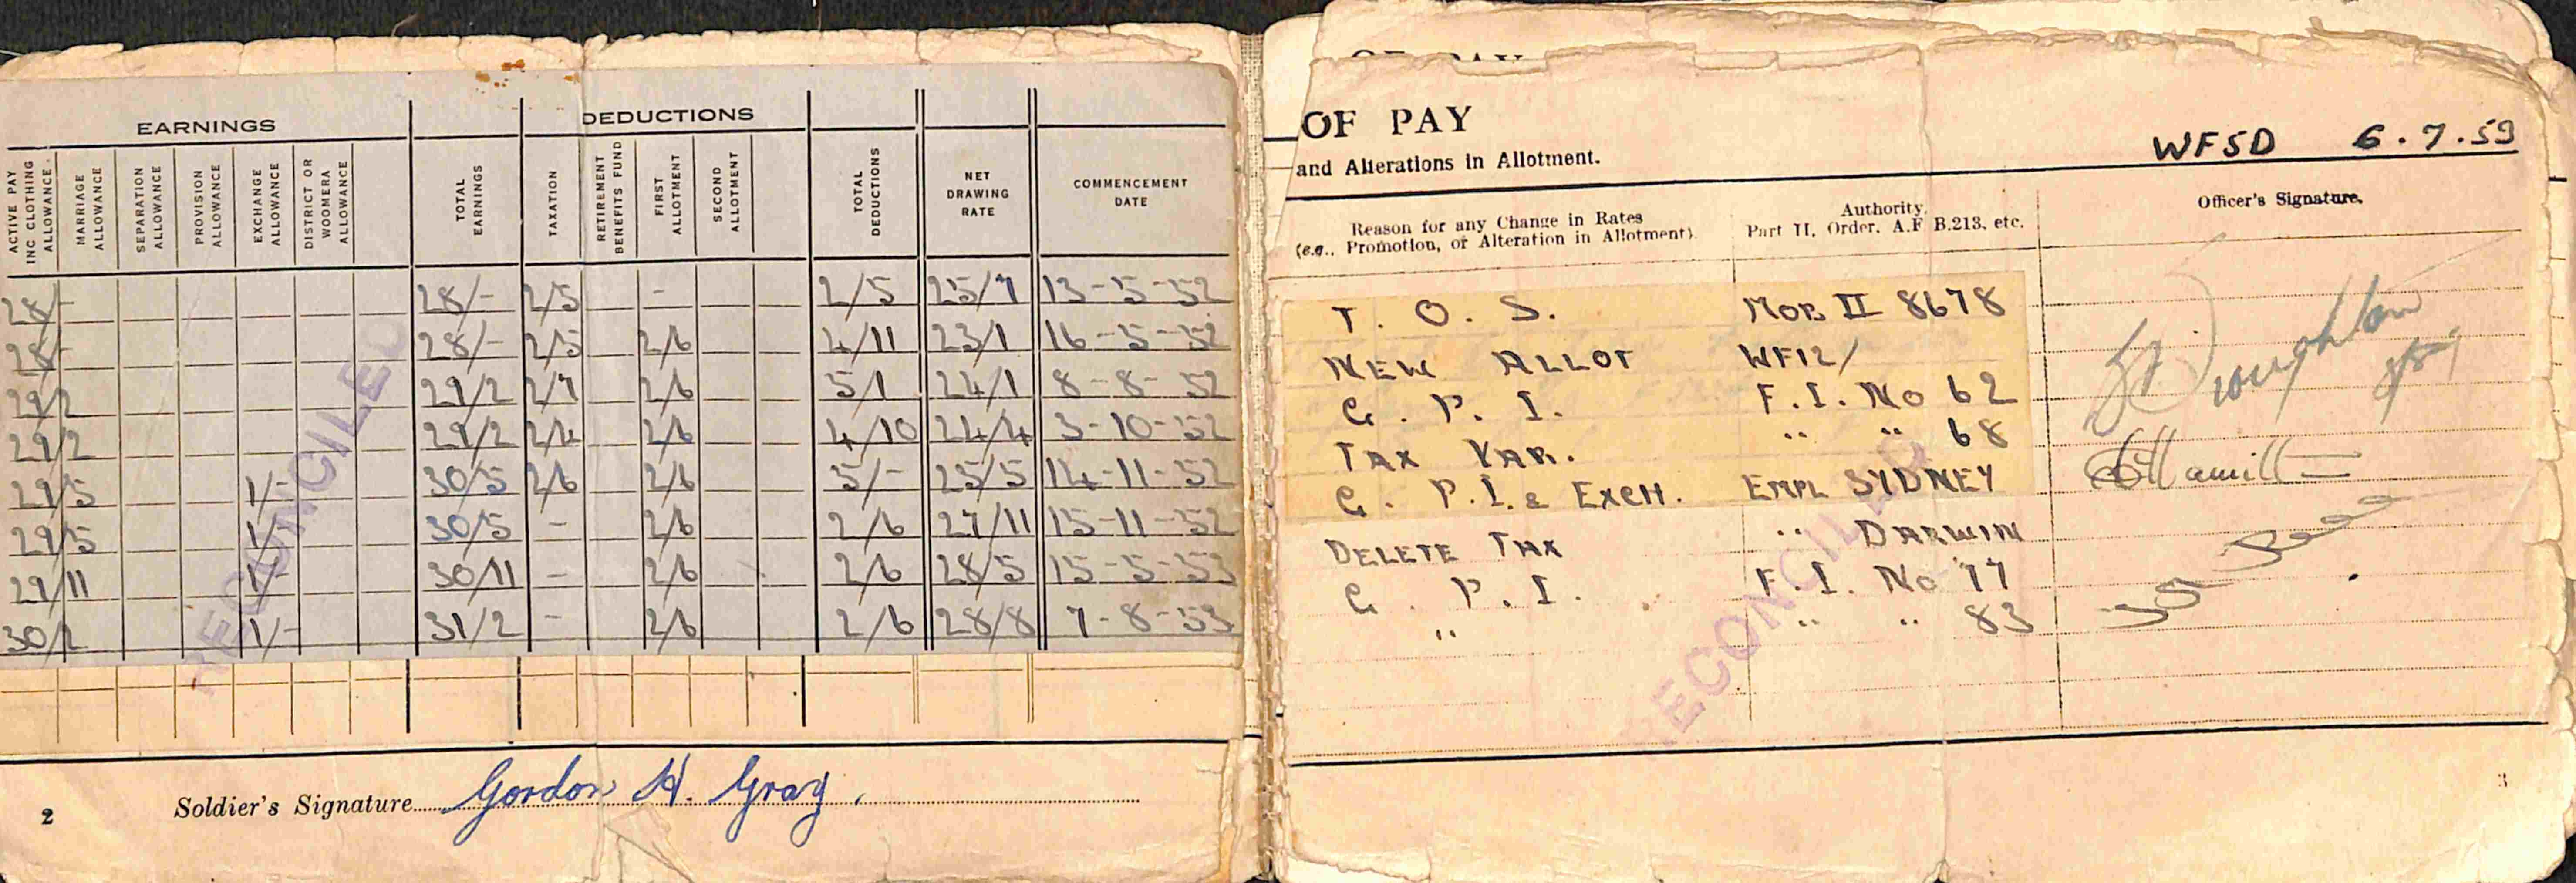 EARNINGS
DEDUCTIONS
ACTIVE PAY INC CLOTHING ALLOWANCE.
MARRIAGE ALLOWANCE
SEPARATION ALLOWANCE
PROVISION ALLOWANCE
EXCHANGE ALLOWANCE
DISTRICT OR WOOMERA ALLOWANCE
TOTAL EARNINGS
TAXATION
RETIREMENT BENEFITS FUND
FIRST ALLOTMENT
SECOND ALLOTMENT
TOTAL DEDUCTIONS
NET DRAWING RATE
COMMENCEMENT DATE
28/- 28/- 2/5 - 2/5 25/7 13-5-52
28/- 28/- 2/5 2/6 4/11 23/1 16-5-52
29/2 29/2 2/7 2/6 5/1 24/1 8-8-52
29/2 29/2 2/4 2/6 4/10 24/4 3-10-52
29/5 1/- 30/5 2/6 2/6 5/- 25/5 14-11-52
29/5 1/- 30/5 - 2/6 2/6 27/11 15-11-52
29/11 1/- 30/11 - 2/6 2/6 28/5 15-5-53
30/2 1/- 31/2 - 2/6 2/6 28/8 7-8-53
RECONCILED
Soldier's Signature Gordon H. Gray.
2
OF PAY
OF PAY
and Alterations in Allotment.
WFSD 6.7.53
Reason for any Change in Rates
(e.g., Promotion, or Alteration in Allotment).
Authority,
Part II, Order, A.F B.213, etc.
Officer's Signature.
T. O. S. MOB II 8678
NEW ALLOT WF12/
C. P. I. F. I. No 62
TAX VAR. " " 68
C. P.I. & EXCH. EMPL SYDNEY
DELETE TAX " DARWIN
C. P. I. F. I. No 77
" " " 83
RECONCILED
3